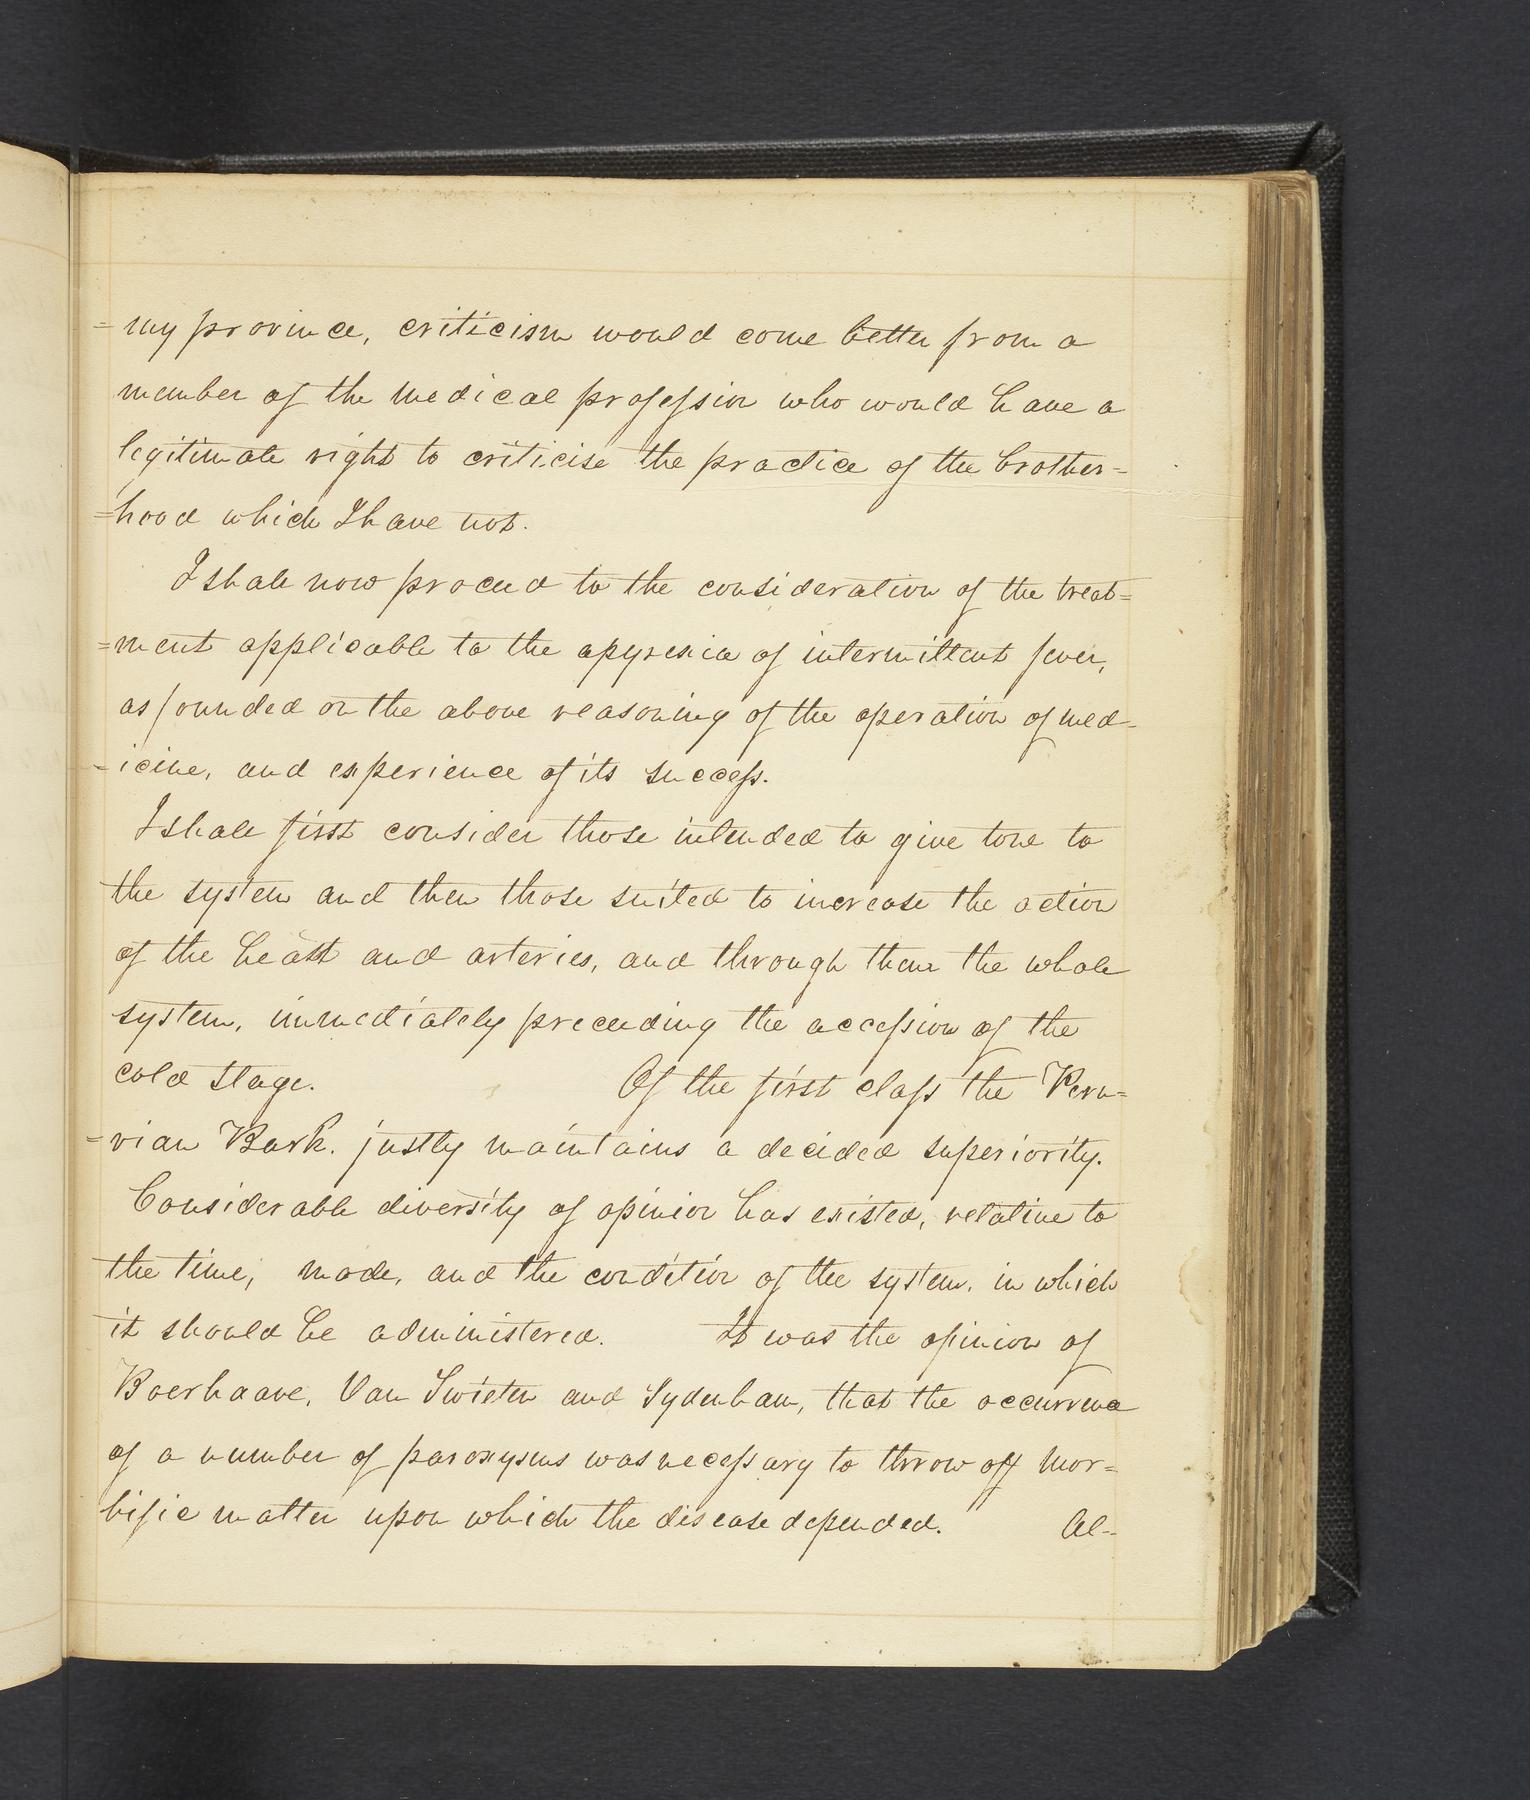 =my province, criticism would come better from a
member of the medical profession who would have a
legitimate right to criticise the practice of the brother=
=hood which I have not.
I shall now proceed to the consideration of the treat=
=ment applicable to the apyrexia of intermittent fever,
as founded on the above reasoning of the operation of med-
-icine, and experience of its success.
I shall first consider those intended to give tone to
the system and then those suited to increase the action
of the heart and arteries, and through them the whole
system, immediately preceeding the accession of the
cold stage. Of the first class the Peru=
=vian Bark. justly maintains a decided superiority.
Considerable diversity of opinion has existed, relative to
the time, mode, and the condition of the system, in which
it should be administered. It was the opinion of
Boerhaave, Van Swieten and Sydenham, that the occurrence
of a number of paroxysms was necessary to throw off mor=
bific matter upon which the disease depended. Al=